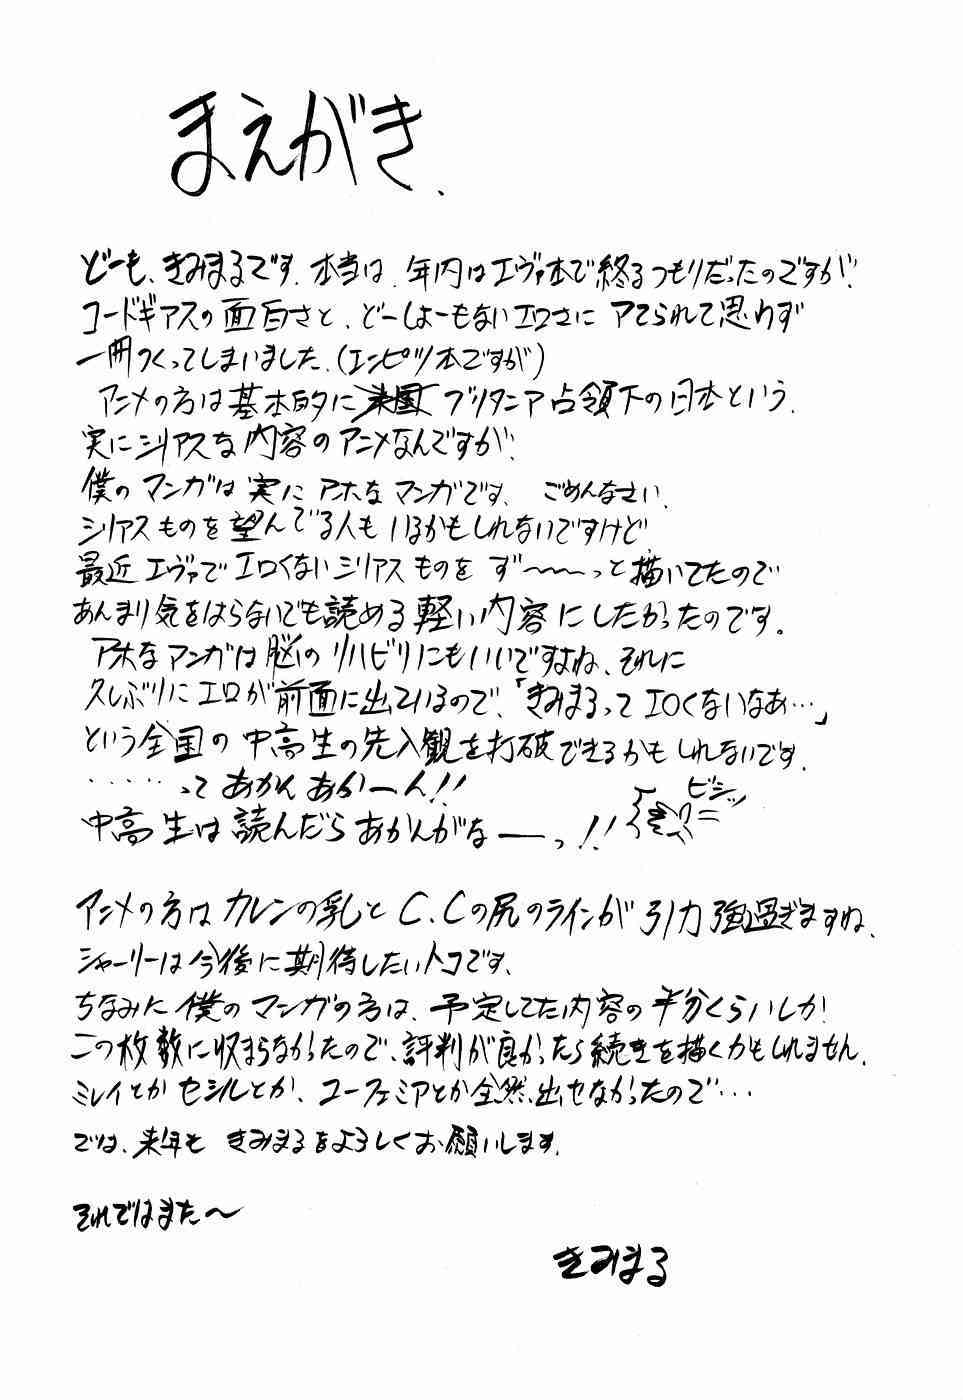 まえがき、
どーも、きみまるです。本当は、年内はエヴァ本で終るつもりだったのですが、
コードギアスの面白さと、どーしよーもないエロさに アてられて思わず
一冊つくってしまいました。(エンピツ本ですが)
アニメの方は基本的に ブリタニア占領下の日本という、
実にシリアスな内容のアニメなんですが、
僕のマンガは実に アホなマンガです。 ごめんなさい。
シリアスものを望んでる人も いるかもしれないですけど
最近 エヴァで エロくないシリアスものを ず〜〜〜っと描いてたので
あんまり気をはらないでも読める軽い内容にしたかったのです。
アホなマンガは脳のリハビリにもいいですよね、それに
久しぶりにエロが前面に出ているので、「きみまるって エロくないなあ…」
という全国の中高生の先入観を打破できるかもしれないです。
・・・・・って あかん あかーん!!
中高生は読んだら あかんがなーっ!!
ビシッ
アニメの方は カレンの乳と C.Cの尻のラインが 引力強過ぎますね。
シャーリーは今後に期待したいトコです。
ちなみに 僕のマンガの方は、予定してた内容の半分くらいしか!
この枚数に収まらなかったので、評判が良かったら続きを描くかもしれません。
ミレイとか セシルとか、ユーフェミアとか全然出せなかったので・・・
では、来年も きみまるをよろしくお願いします。
それではまた〜
きみまる